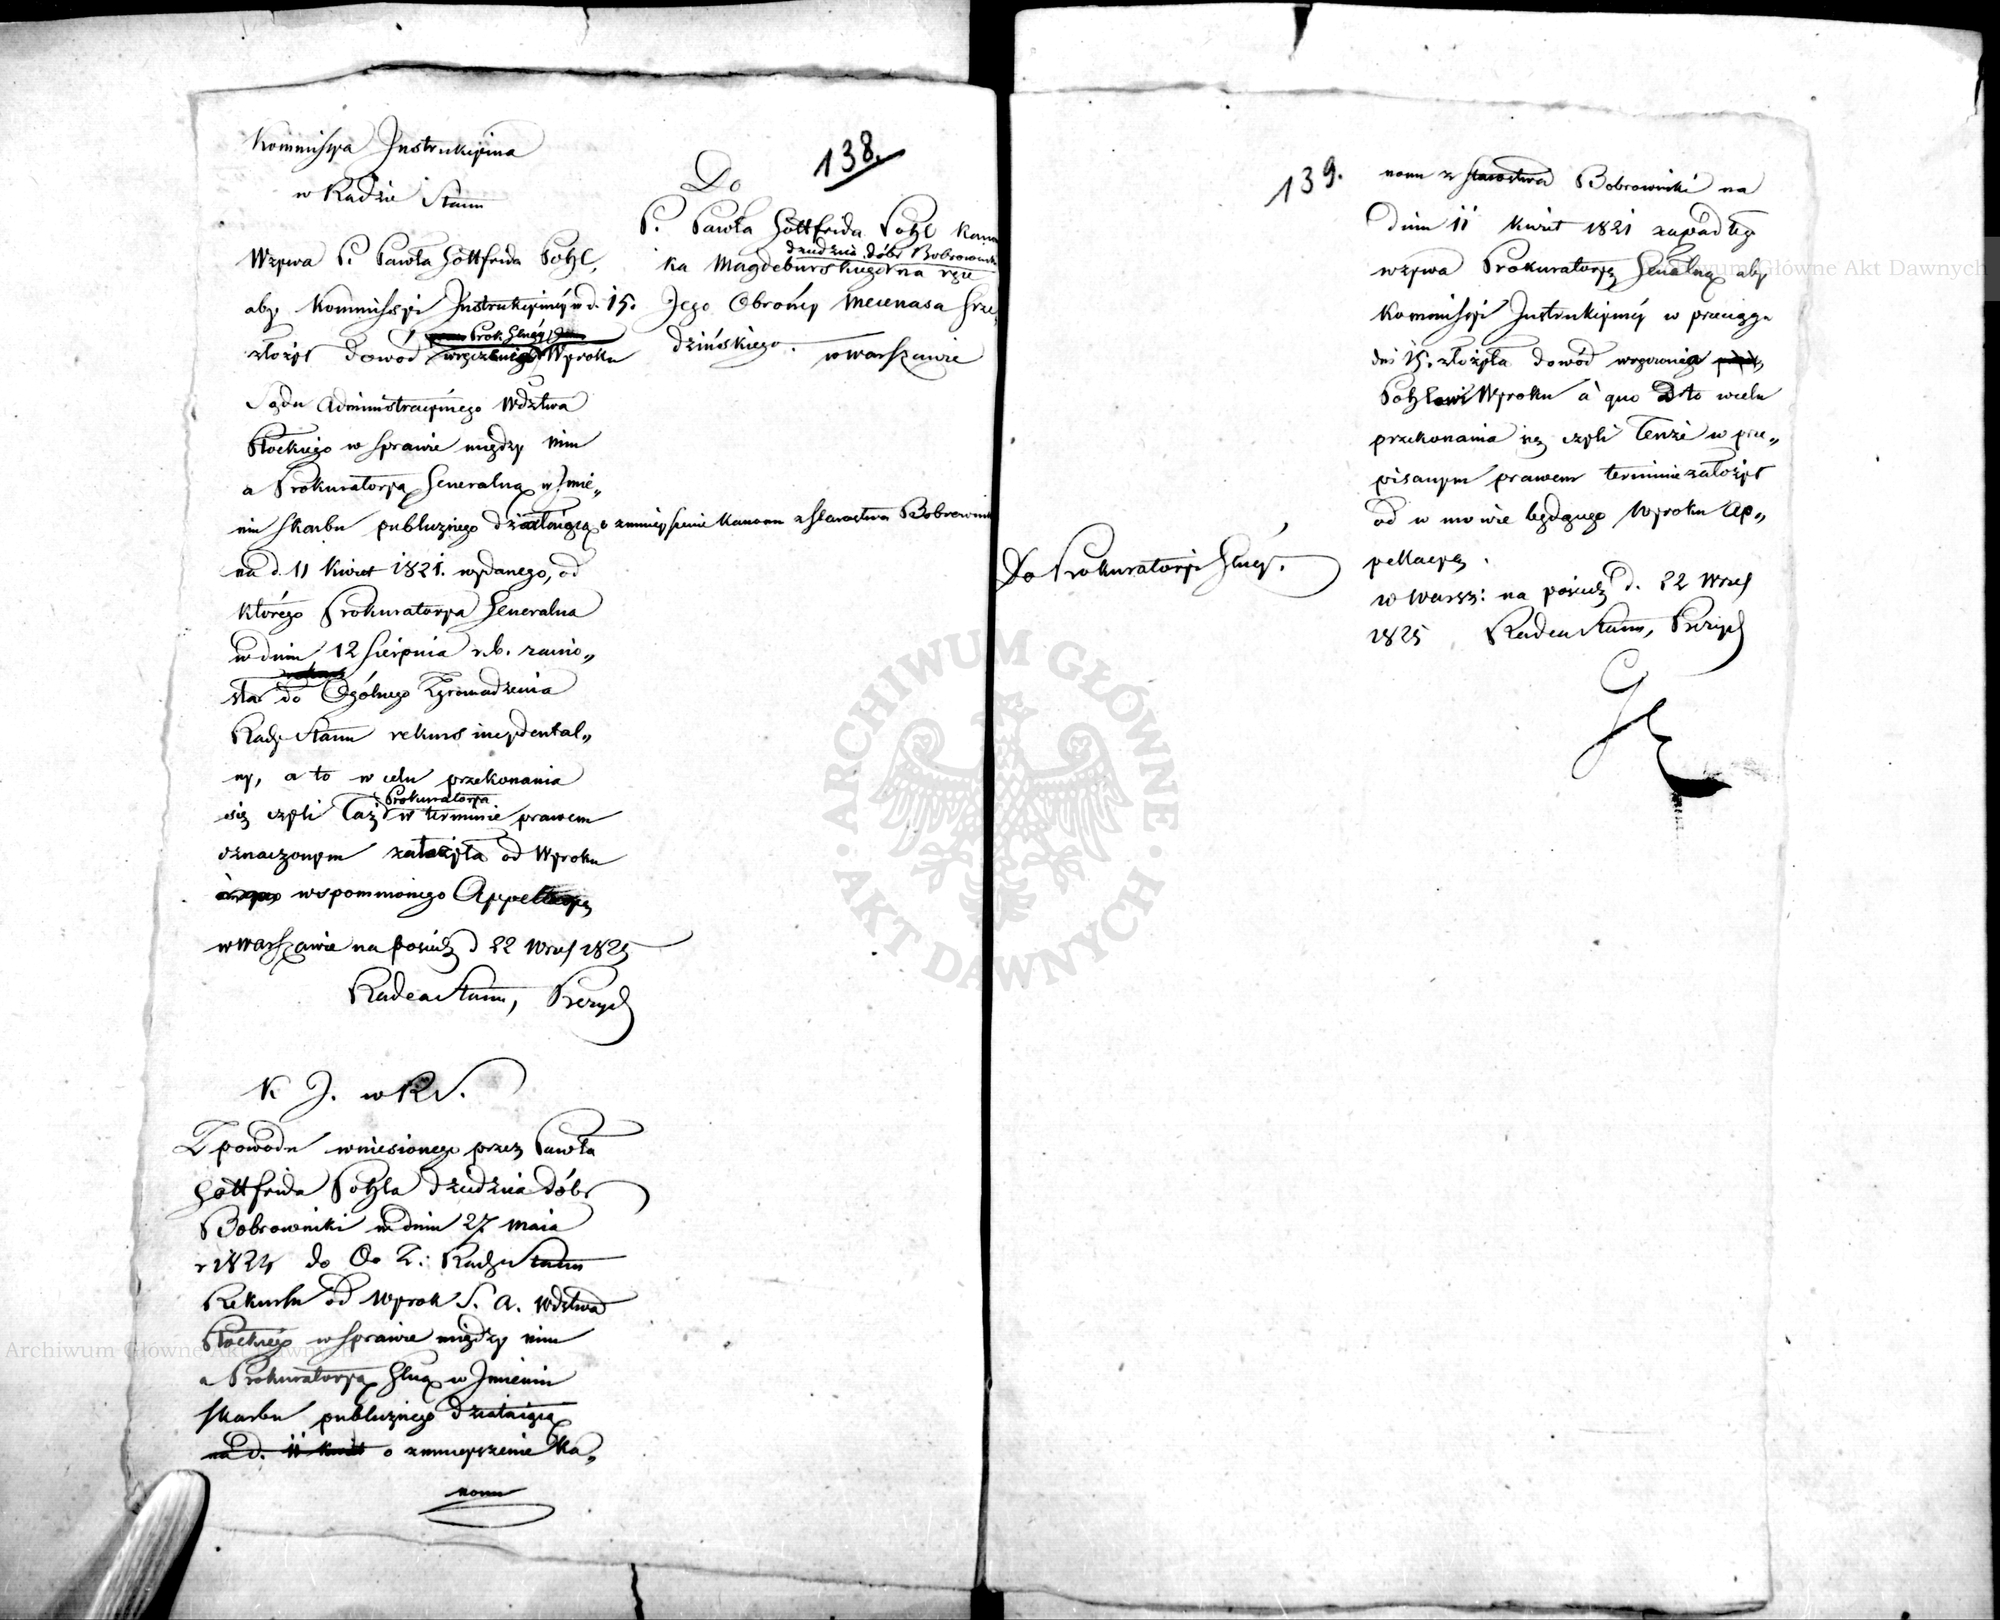 138.
Kommissya Instrukcyina
w Radzie Stanu
Wzywa P. Pawła Gottfrida Pohl,
aby Kommissyi Instrukcyinéy w d. 15.
złożył dowód wręczenia Wyroku
Sądu Administracyinego Wdztwa
Płockiego w sprawie między nim
a Prokuratoryą Generalną w Imie„
niu Skarbu publicznego działaiącą o zmnieyszenie Kanonu z Starostwa Bobrowniki
na d. 11 Kwiet 1821. wydanego, od
którego Prokuratorya Generalna
w dniu 12 Sierpnia r.b. zanio„
sła do Ogólnego Zgromadzenia
Rady Stanu rekurs incydental„
ny, a to w celu przekonania
się czyli Taż Prokuratorya w terminie prawem
oznaczonym założyła od Wyroku
wspomnionego Appellacyę
w Warszawie na posiedz d 22 Wrześ 1825
Radca Stanu, Prezyd
Do
P. Pawła Gottfrida Pohl Kano
nika Magdeburskiego na ręce
dziedzica dóbr Bobrowniki
Jego Obrońcy Mecenasa Grze„
dzińskiego.
w Warszawie
K J. w R S.
Z powodu wniesionego przez Pawła
Gottfrida Pohla dziedzica dóbr
Bobrowniki w dniu 27 Maia
r 1824 do O. Z: Rady Stanu
Rekursu od Wyrok S. A. Wdztwa
Płockiego w sprawie między nim
a Prokuratoryą Glną w Imieniu
Skarbu publicznego działaiącą
na d. 11 Kwiet o zmnieyszenie Ka„
nonu
139.
nonu z Starostwa Bobrowniki na
dniu 11 Kwiet 1821 zapadłego
wzywa Prokuratoryę Genalną aby
Kommissyi Instrukcyinéy w przeciągu
dni 15. złożyła dowód wręczenia
Pohlowi Wyroku à quo a to w celu
przekonania się czyli Tenże w prze„
pisanym prawem terminie założył
od w mowie będącego Wyroku Ap„
pellacyę.
w Warsz: na posiedz d. 22 Wrześ
1825 Radca Stanu, Prezyd
Do Prokuratoryi Glnéy.
ARCHIWUM GŁÓWNE
AKT DAWNYCH
Archiwum Główne Akt Dawnych
Archiwum Główne Akt Dawnych